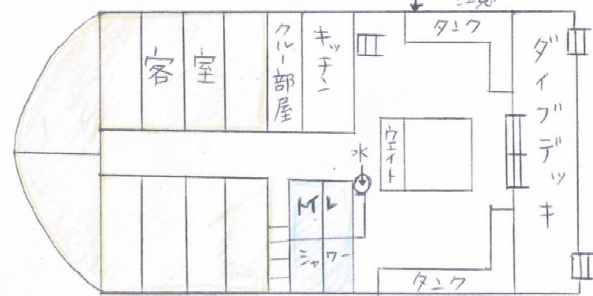 タンク
客室
クルー部屋
キッチン
ダイブデッキ
ウエイト
水
トイレ
シャワー
タンク